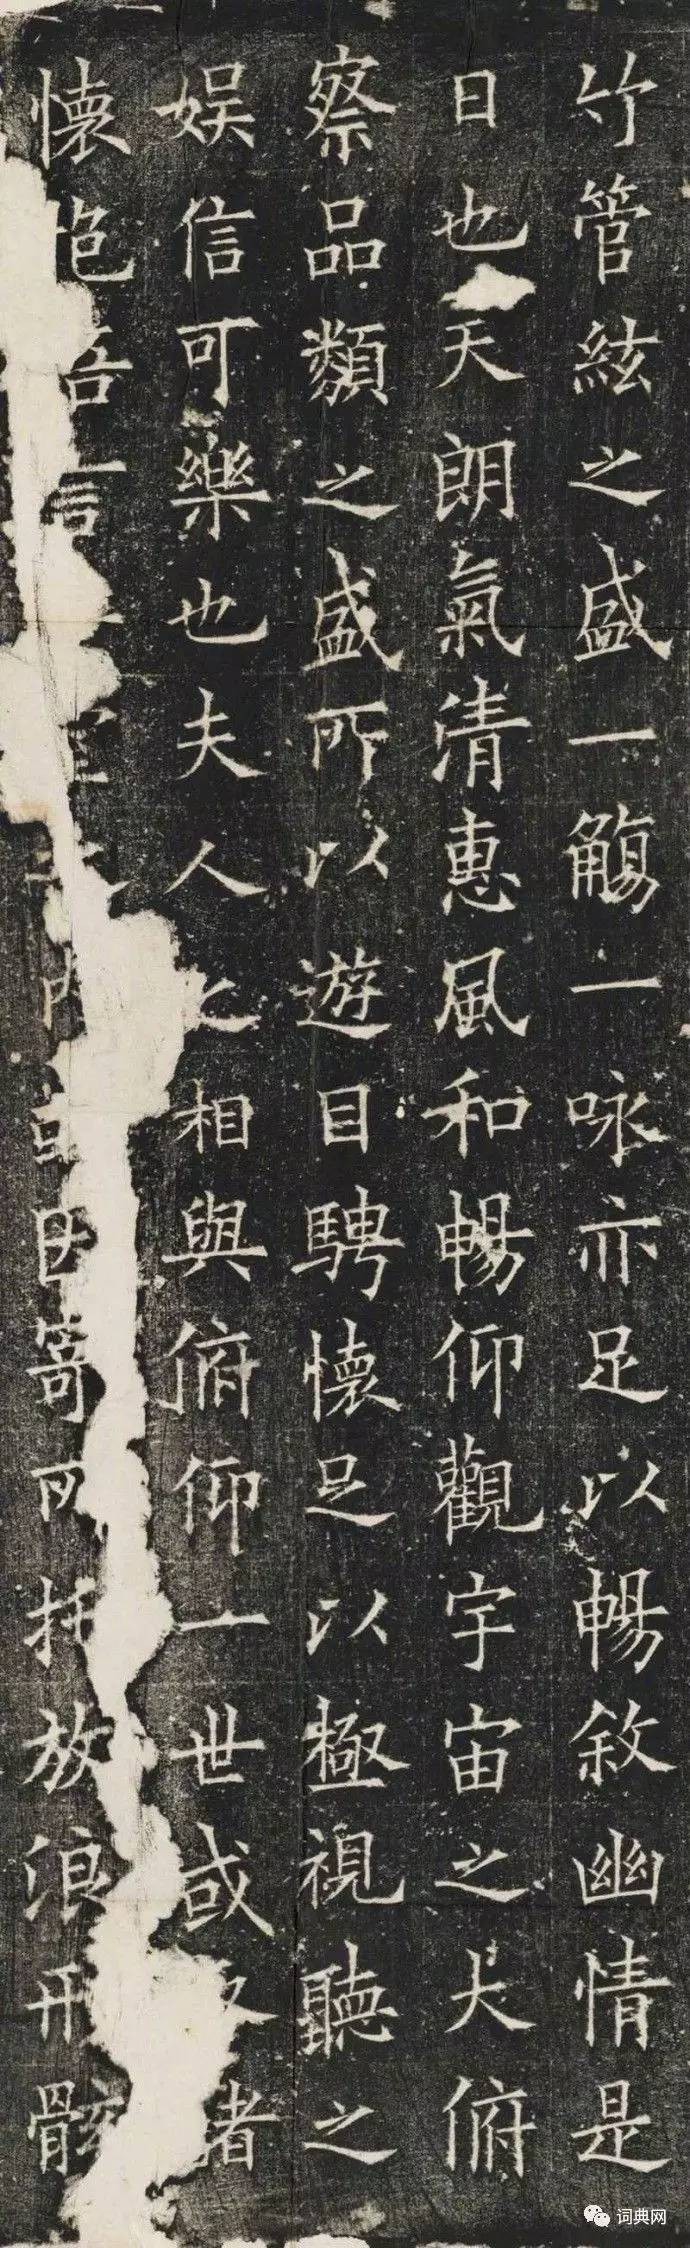 竹管絃之盛一觴一咏亦足以暢敘幽情是
日也天朗氣清惠風和暢仰觀宇宙之大俯
察品類之盛所以遊目騁懷足以極視聽之
娛信可樂也夫人之相與俯仰一世或取諸
懷抱悟言一室之內或因寄所托放浪形骸
词典网